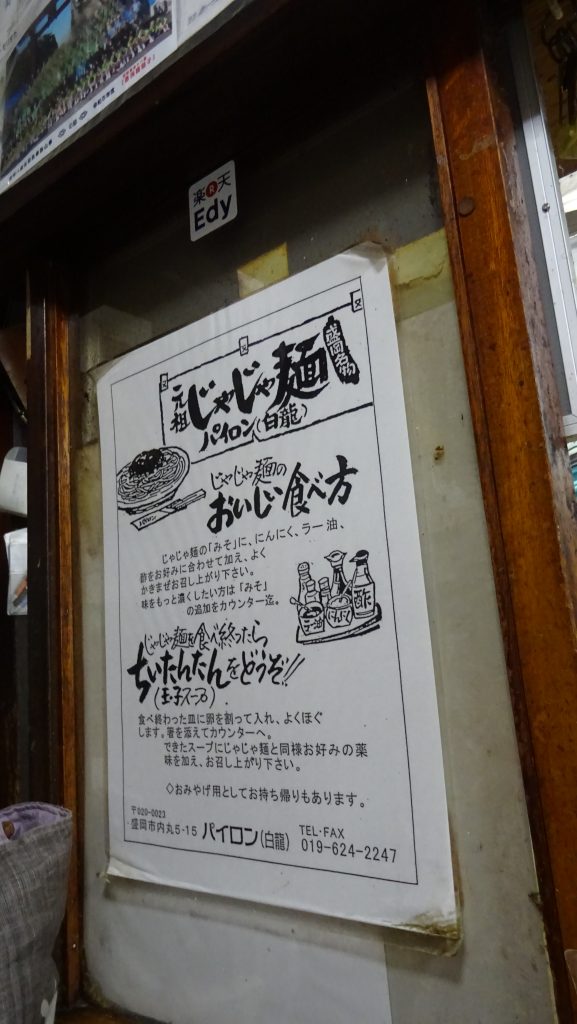 楽天
Edy
盛岡名物
元祖 じゃじゃ麺
パイロン(白龍)
じゃじゃ麺の
おいしい食べ方
じゃじゃ麺の「みそ」に、にんにく、ラー油、
酢をお好みに合わせて加え、よく
かきまぜお召し上がり下さい。
味をもっと濃くしたい方は「みそ」
の追加をカウンター迄。
ラー油 にんにく 酢
じゃじゃ麺を食べ終ったら
ちいたんたんをどうぞ!!
(玉子スープ)
食べ終わった皿に卵を割って入れ、よくほぐ
します。箸を添えてカウンターへ。
できたスープにじゃじゃ麺と同様お好みの薬
味を加え、お召し上がり下さい。
◇おみやげ用としてお持ち帰りもあります。
〒020-0023
盛岡市内丸5-15 パイロン(白龍) TEL・FAX
019-624-2247